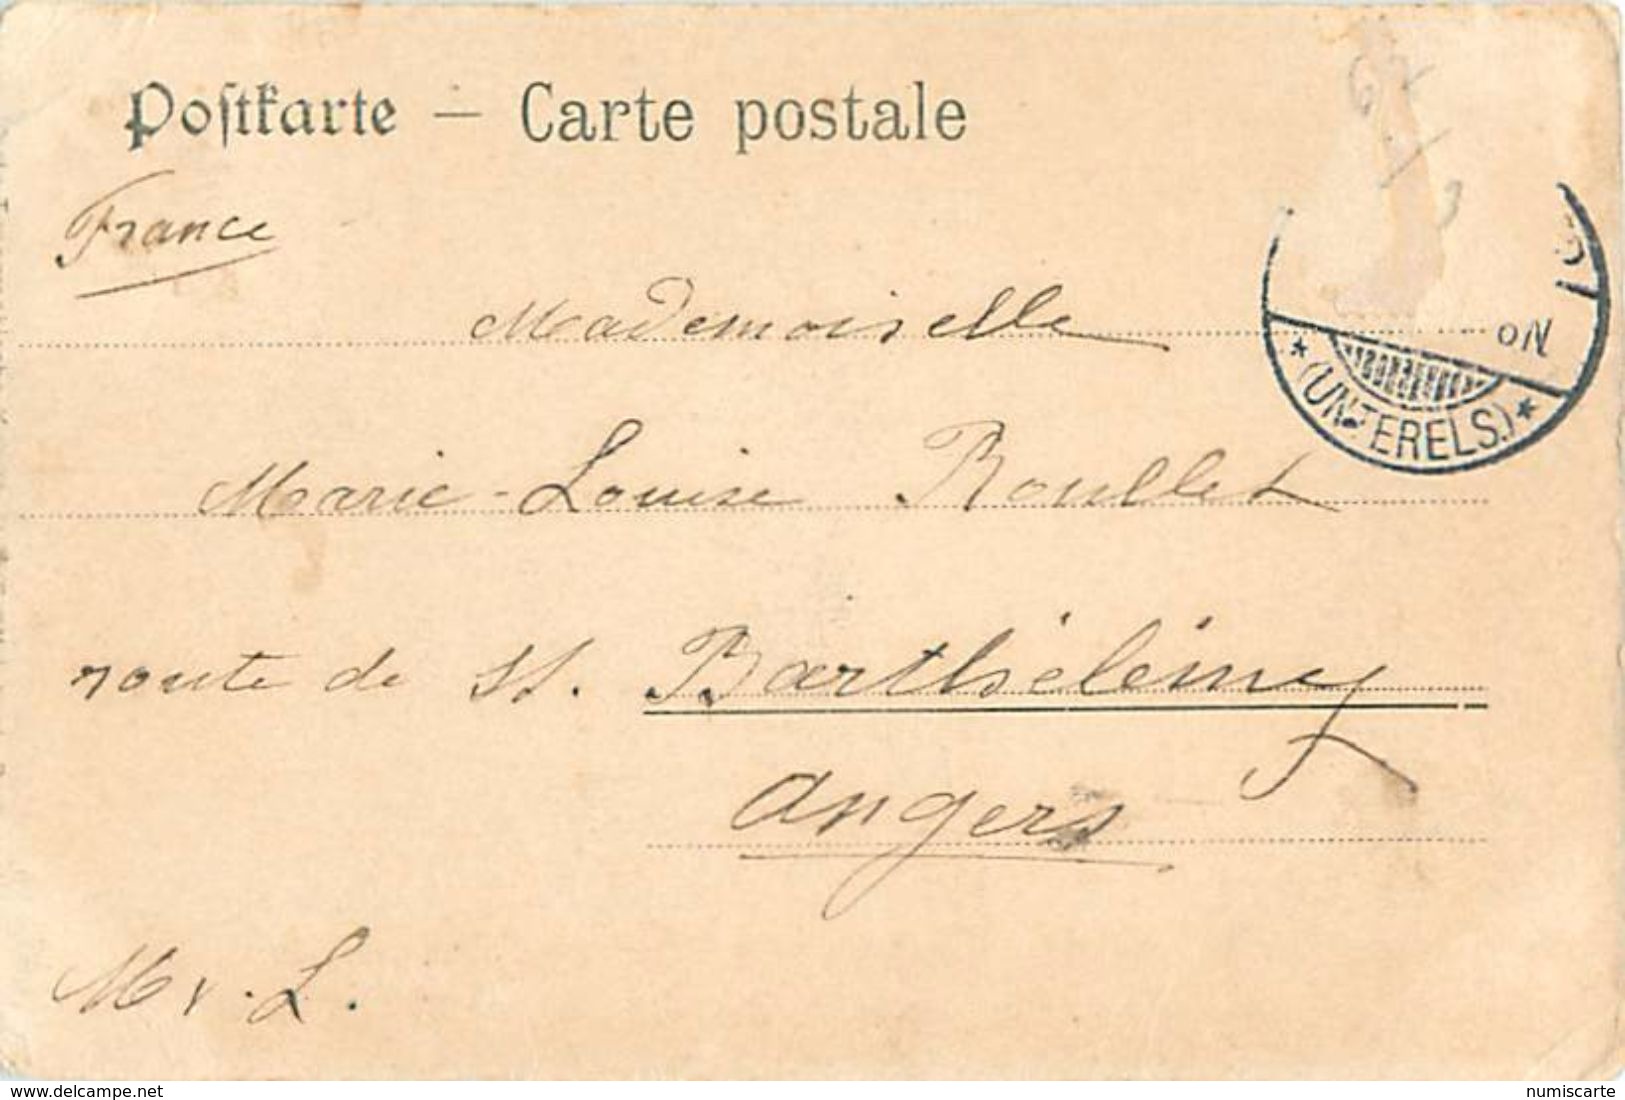 Postkarte — Carte postale
67
France
Mademoiselle
* (UNTERELS.) *
Marie-Louise Roullet
route de St. Barthélémy
Angers
M v. L.
www.delcampe.net
numiscarte